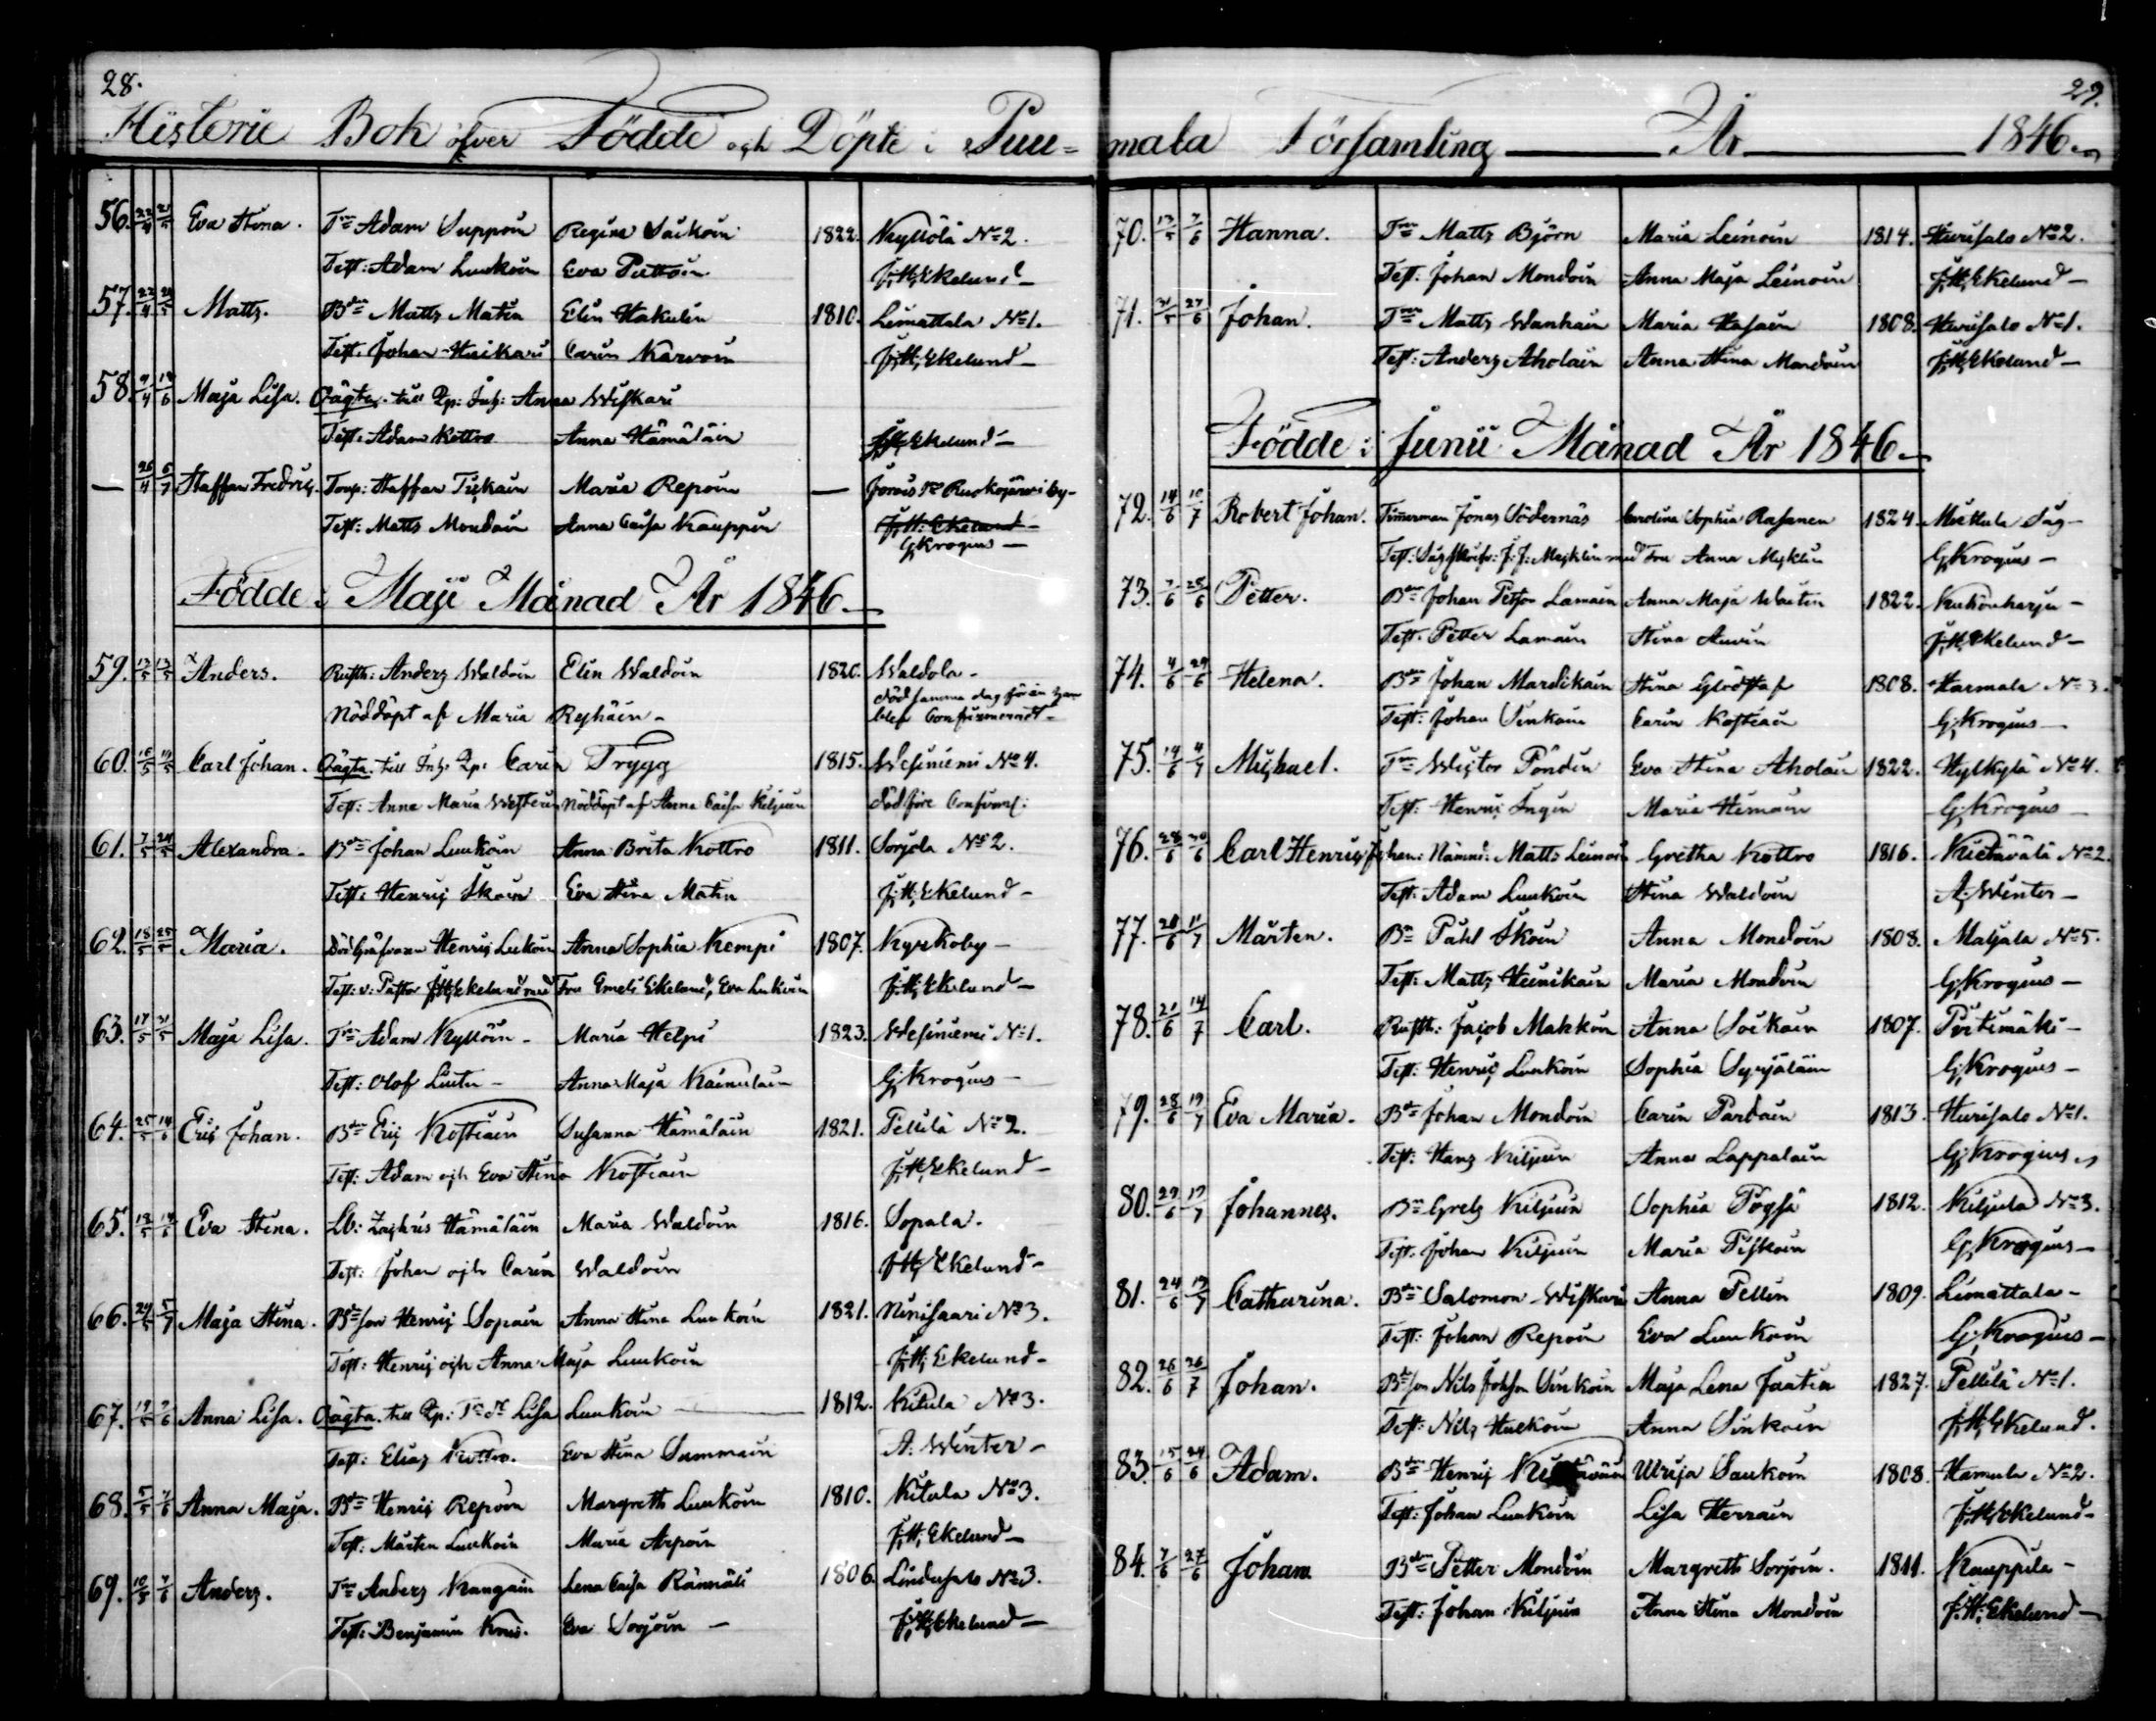 28.
Historie Bok öfver Födde och Döpte i Puu=
56. 22/4 21/5 Eva Stina. Tn Adam Suppoin Regina Saikoin 1822. Kyllölä No 2.
Test: Adam Luukoin Eva Puttoin J.H. Ekelund
57. 22/4 24/5 Matts. Bdn Matts Matin Elin Hakulin 1810. Limattala No 1.
Test: Johan Huikari Carin Karvoin J.H. Ekelund
58. 9/4 14/6 Maja Lisa. Oägta. till Qp: Inh: Anna Wiskari
Test: Adam Kottro Anna Hämäläin J.H. Ekelund
— 26/4 5/7 Staffan Fredric. Torp: Staffan Maria Repoin — Jorois Sn Ruokojärvi by
Test: Matts Mondoin Anna Caisa Kauppin J.H. Ekelund
G. Krogius
Födde i Maji Månad År 1846
59. 13/5 13/5 Anders. Rusth: Anders Waldoin Elin Waldoin 1820. Waldola
Nöddöpt af Maria död samma dag förän han
blef Confirmerad
60. 16/5 17/5 Carl Johan. Oägta. till Inh. Qp: Carin Trygg 1815. Wesiniemi No 4.
Test: Anna Maria Nöddöpt af Anna Caisa Kiljuin död före Confirm:
61. 7/5 24/5 Alexandra. Bdn Johan Luukoin Anna Brita Kottro 1811. Sorjola No 2.
Test: Henric Ikoin Eva Stina Matin J.H. Ekelund
62. 18/5 25/5 Maria. Henric Lukoin Anna Sophia Kempi 1807. Kyrkoby
Test: v: Pastor J.H. Ekelund med Fru Emeli Ekelund, Eva Lukoin J.H. Ekelund
63. 17/5 31/5 Maja Lisa. Tn Adam Kyllöin Maria Helpi 1823. Wesiniemi No 1.
Test: Olof Anna Maja Kainulain G. Krogius
64. 25/5 14/6 Eric Johan. Bdn Eric Kostiain Susanna Hämäläin 1821. Pellilä No 2.
Test: Adam och Eva Stina Kostiain J.H. Ekelund
65. 12/5 14/6 Eva Stina. Lb: Zachris Hämäläin Maria Waldoin 1816. Sopala.
Test: Johan och Carin Waldoin J.H. Ekelund
66. 24/5 5/7 Maja Stina. Bdson Henric Sopain Anna Stina Luukoin 1821. Niinisaari No 3.
Test: Henric och Anna Maja Luukoin J.H. Ekelund
67. Anna Lisa. Oägta. till Qp: Lisa Luukoin 1812. Kitula No 3.
Test: Elias Kottro. Eva Stina Summain A. Winter
68. 5/5 7/6 Anna Maja. Bdn Henric Repoin Margreth Luukoin 1810. Kitula No 3.
Test: Mårten Luukoin Maria Arpoin J.H. Ekelund
69. 10/5 7/6 Anders. Tn Anders Kangain Lena Caisa 1806. Lindusalo No 3.
Test: Benjamin Eva Sorjoin J.H. Ekelund
29.
mala Församling År 1846.
70. 13/5 7/6 Hanna. Tn Matts Björn Maria Leinoin 1814. Hurisalo No 2.
Test: Johan Mondoin Anna Maja Leinoin J.H. Ekelund
71. 31/5 27/6 Johan. Tn Matts Wanhain Maria Hasain 1808. Hurisalo No 1.
Test: Anders Aholain Anna Stina Mondoin J.H. Ekelund
Födde i Junii Månad År 1846
72. 14/6 10/7 Robert Johan. Timerman Jonas Södernäs Carolina Sophia Rasanen 1824. Miettula Såg
Test: J:J: med Fru Anna G. Krogius
73. 7/6 28/6 Petter. Bdn Johan Lamain Anna Maja Wautin 1822. Kukonharju
Test: Petter Lamain Stina Auvin J.H. Ekelund
74. 4/6 29/6 Helena. Bdn Johan Mardikain Stina Glödstaf 1808. Harmala No 3.
Test: Johan Sinkoin Carin Kostiain G. Krogius
75. 14/6 4/7 Michael. Tn Wictor Pöndin Eva Stina Aholain 1822. Hylkylä No 4.
Test: Henric Ingin Maria Himain G. Krogius
76. 28/6 30/6 Carl Henric Johan: Nämnd: Matts Leinoin Gretha Kottro 1816. Kietävälä No 2.
Test: Adam Luukoin Stina Waldoin A. Winter
77. 28/6 11/7 Mårten. Bn Påhl Ikoin Anna Mondoin 1808. Maljala No 5.
Test: Matts Heinikain Maria Mondoin G. Krogius
78. 21/6 14/7 Carl. Rusth: Jacob Makkoin Anna Soikain 1807. Pistimäki
Test: Henric Luukoin Sophia Syrjäläin G. Krogius
79. 28/6 19/7 Eva Maria. Bdn Johan Mondoin Carin Pardain 1813. Hurisalo No 1.
Test: Hans Kiljuin Anna Lappalain G. Krogius
80. 29/6 19/7 Johannes. Bn Grels Kiljuin Sophia Pöysä 1812. Kiljula No 3.
Test: Johan Kiljuin Maria Piskoin G. Krogius
81. 24/6 19/7 Catharina. Bdn Salomon Wiskari Anna Pellin 1809. Limattala
Test: Johan Repoin Eva Luukoin G. Krogius
82. 26/6 26/7 Johan. Bdson Nils Johson Sinkoin Maja Lena Jaatin 1827. Pellilä No 1.
Test: Nils Huckoin Anna Sinkoin J.H. Ekelund.
83. 15/6 24/6 Adam. Bdn Henric Ulrica Saukoin 1808. Hamula No 2.
Test: Johan Luukoin Lisa Herrain J.H. Ekelund
84. 7/6 27/6 Johan Bdn Petter Mondoin Margreth Sorjoin. 1811. Kauppila
Test: Johan Kiljuin Anna Stina Mondoin J.H. Ekelund